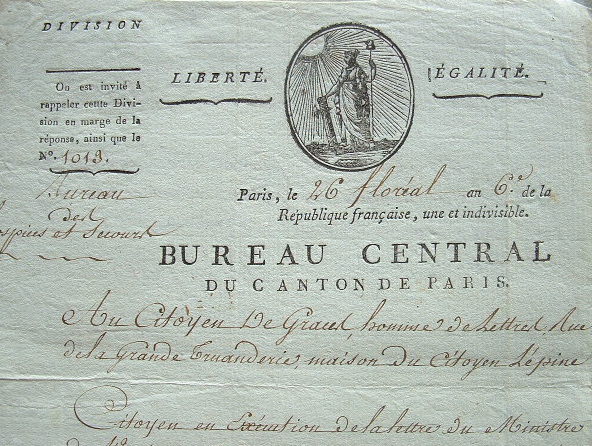 DIVISION
On est invité à
rappeler cette Divi-
sion en marge de la
réponse, ainsi que le
N°. 1013.
Bureau
des
hospices et Secours
LIBERTÉ.
ÉGALITÉ.
Paris, le 26 floréal an 6.e de la
République française, une et indivisible.
BUREAU CENTRAL
DU CANTON DE PARIS.
Au Citoyen De Graces, homme de Lettres, Rue
de la Grande Truanderie, maison du Citoyen Lépine
Citoyen en Exécution de la lettre du Ministre